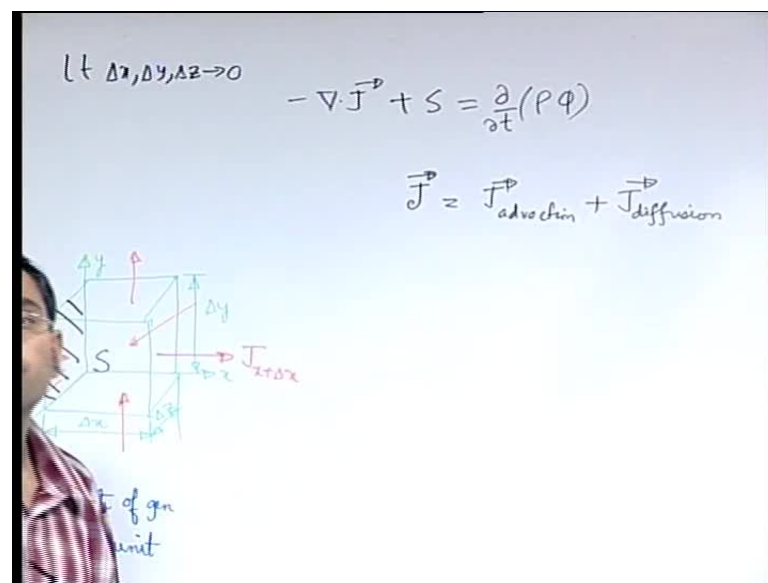 Lt Δx,Δy,Δz→0
-∇·J⃗ + S = ∂/∂t (ρφ)
J⃗ = J⃗advection + J⃗diffusion
Δy
Δy
S
J x+Δx
x
Δx
Δz
of gen
unit